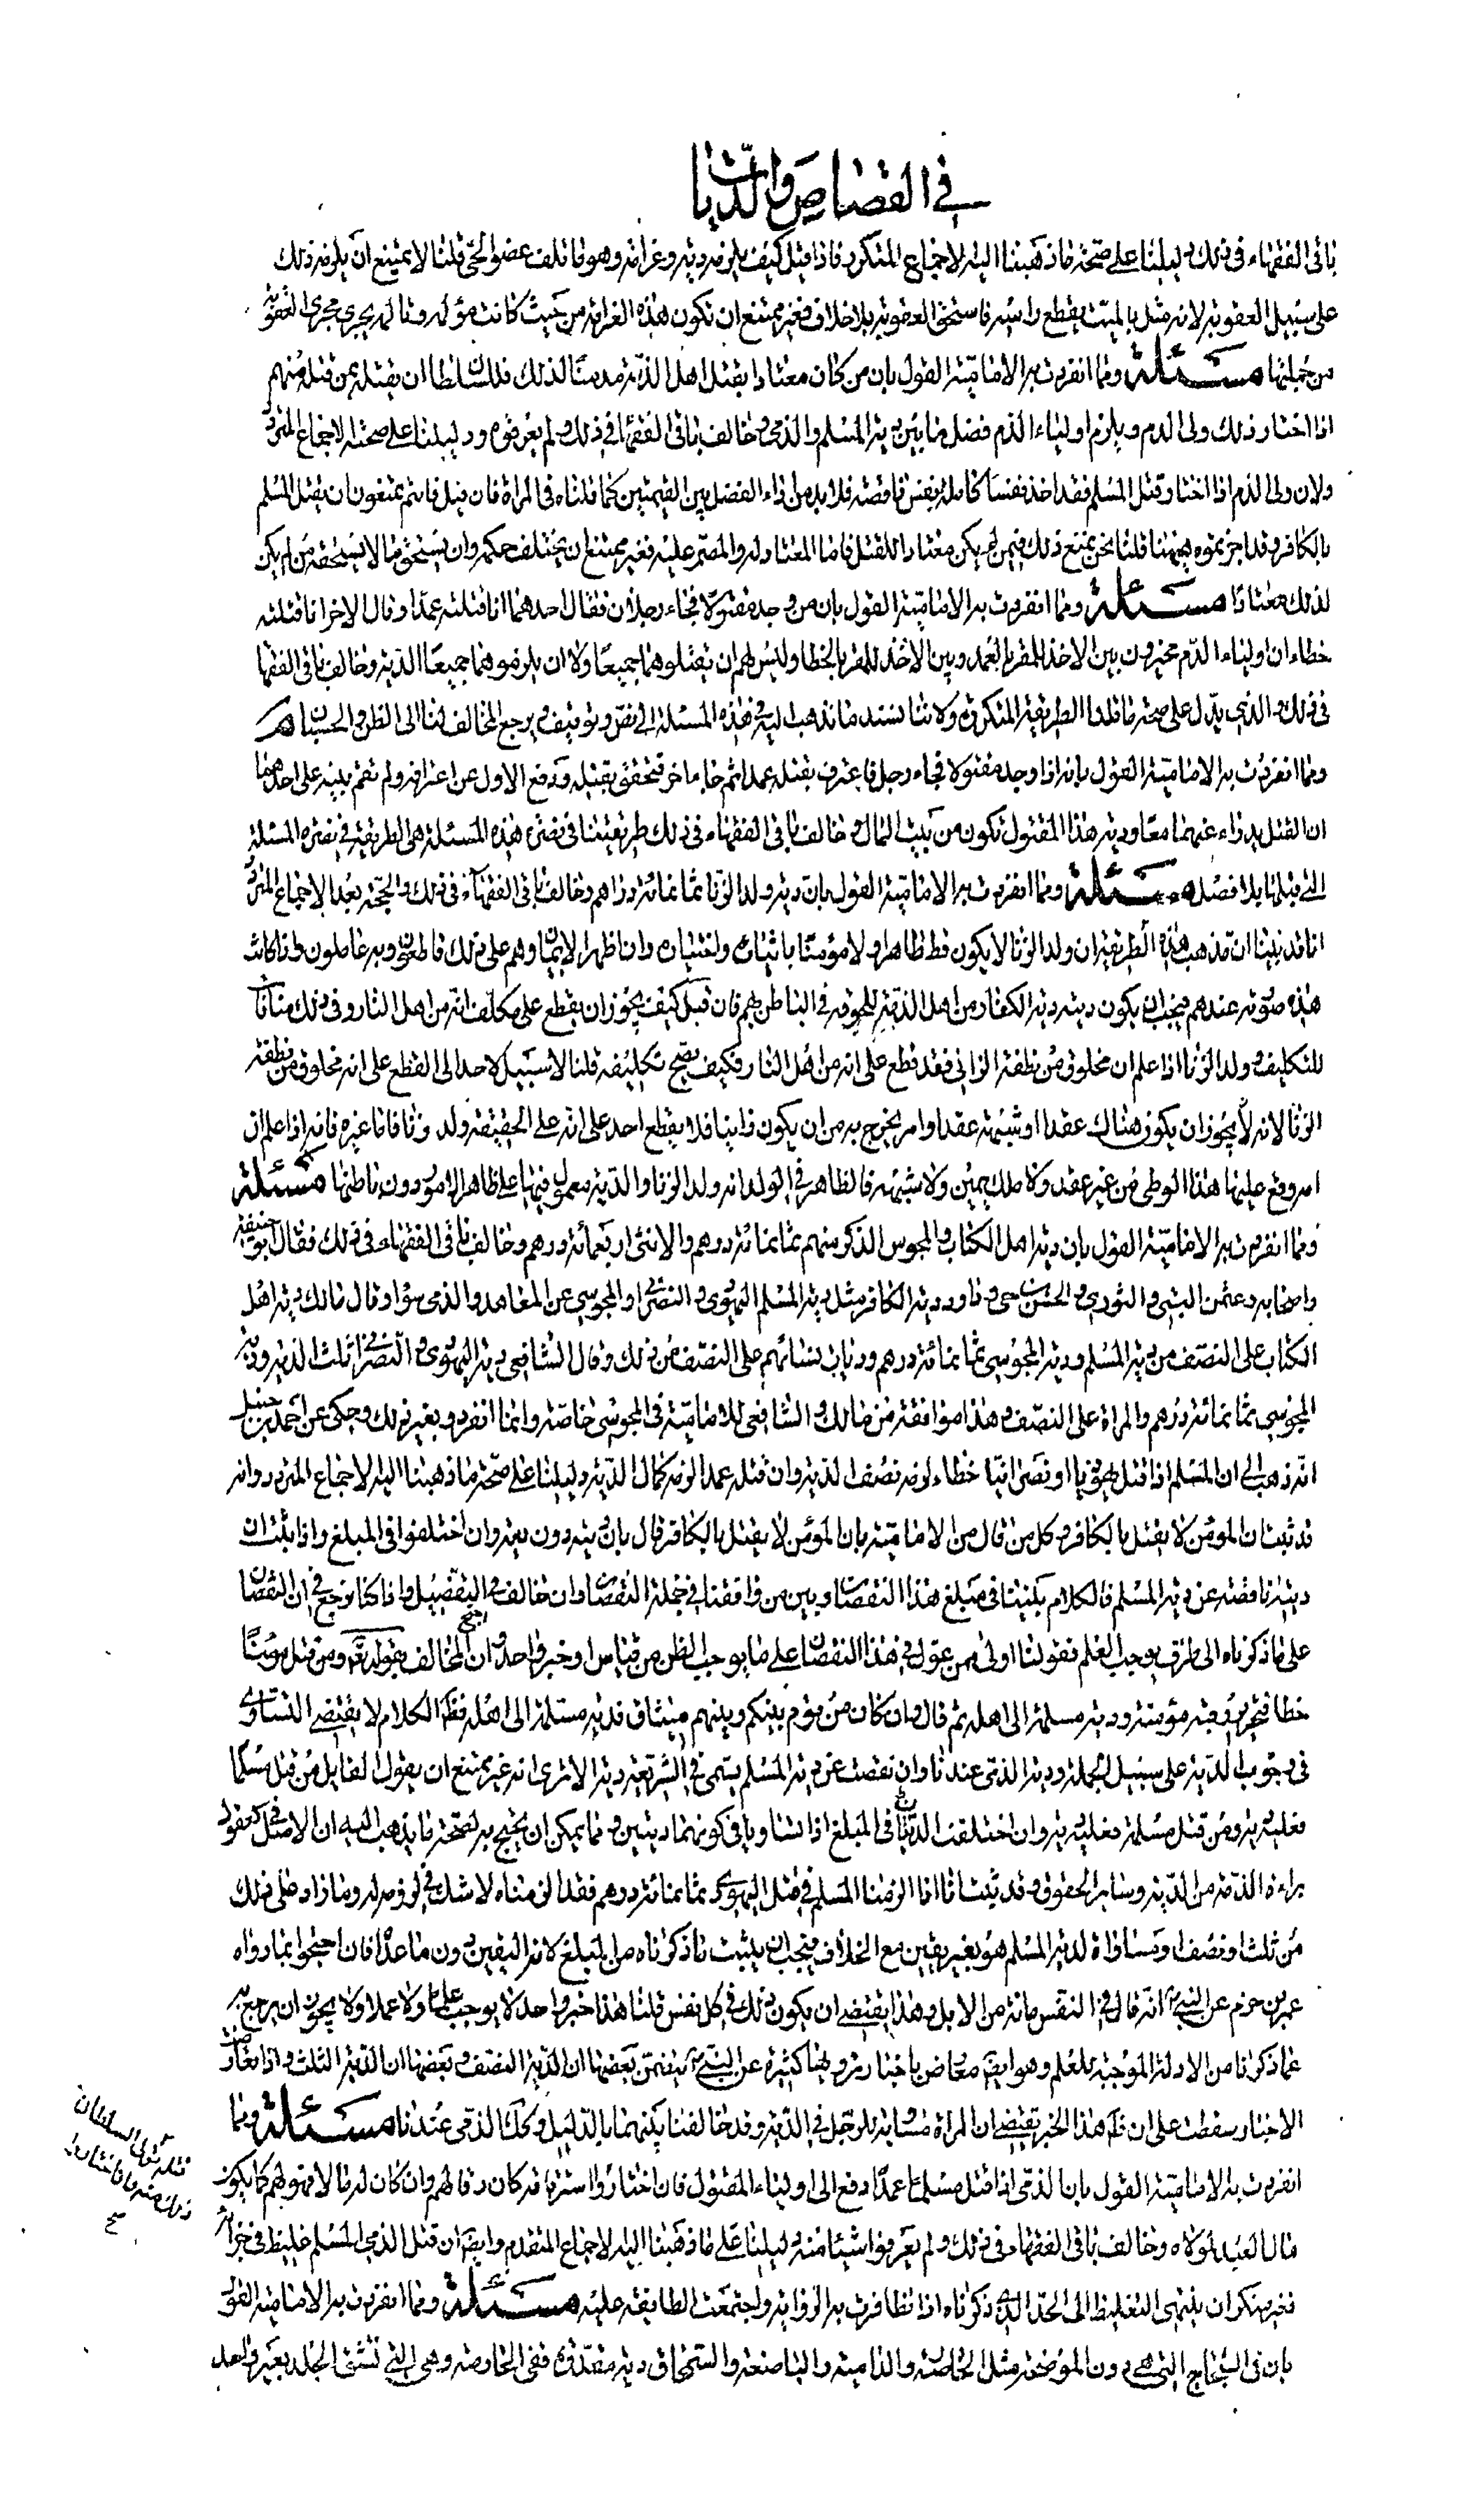 في القصاص والديات
باقي الفقهاء في ذلك دليلنا على صحة ما ذهبنا اليه الاجماع المتكرر فاذا قيل كيف يلزمه دية وغرامة وهو ما اتلف عضوا لحي قلنا لا يمتنع ان يلزمه ذلك
على سبيل العقوبة لانه مثل بالميت بقطع راسه فاستحق العقوبة بلا خلاف فغير ممتنع ان تكون هذه الغرامة من حيث كانت مؤلمة وتالمه يجري مجرى العقوبة
من جملتها مسئلة ومما انفردت به الامامية القول بان من كان معتادا بقتل اهل الذمة مدمنا لذلك فللسلطان ان يقتله بمن قتله منهم
اذا اختار ذلك ولي الدم ويلزم اولياء الدم فضل ما بين دية المسلم والذمي وخالف باقي الفقهاء في ذلك ولم يعرفوه ودليلنا على صحته الاجماع المتردد
ولان ولي الدم اذا اختار قتل المسلم فقد اخذ نفسا كاملة بنفس ناقصة فلا بد من اداء الفضل بين القيمتين كما قلناه في المراة فان قيل فانتم تمنعون ان يقتل المسلم
بالكافر وقد اجزتموه ههنا قلنا نحن نمنع ذلك فيمن لم يكن معتادا للقتل فاما المعتاد له والمصر عليه فغير ممتنع ان يختلف حكمه وان يستحق ما لا يستحقه من لم يكن
لذلك معتادا مسئلة ومما انفردت به الامامية القول بان من وجد مقتولا فجاء رجلان فقال احدهما انا قتلته عمدا وقال الاخر انا قتلته
خطاء ان اولياء الدم مخيرون بين الاخذ للمقر بالعمد وبين الاخذ للمقر بالخطا وليس لهم ان يقتلوهما جميعا ولا ان يلزموهما جميعا الدية وخالف باقي الفقها
في ذلك والذي يدل على صحة ما قلنا الطريقة المتكررة ولاننا نسند ما نذهب اليه في هذه المسئلة الى نص وتوقيف ويرجع المخالف لنا الى الظن والحسبان
ومما انفردت به الامامية القول بانه اذا وجد مقتولا فجاء رجل فاعترف بقتله عمدا ثم جاء اخر فتحقق بقتله ودفع الاول عن اعترافه ولم تقم بينة على احدهما
ان القتل يدراء عنهما معا ودية هذا المقتول تكون من بيت المال وخالف باقي الفقهاء في ذلك طريقتنا في نصرة هذه المسئلة هي الطريقة في نصرة المسئلة
التي قبلها بلا فصل مسئلة ومما انفردت به الامامية القول بان دية ولد الزنا ثمانمائة دراهم وخالف باقي الفقهآء في ذلك والحجة بعد الاجماع المتردد
انا قد بينا ان مذهب هذه الطريقة ان ولد الزنا لا يكون قط طاهرا ولا مؤمنا باثباته واختياره وان اظهر الايمان وهم على ذلك قاطعون وبه عاملون واذا كانت
هذه صورته عندهم فيجب ان يكون ديته دية الكفار من اهل الذمة للحوقه في الباطن بهم فان قيل كيف يجوز ان يقطع على مكلف انه من اهل النار وفي ذلك منافاة
للتكليف وولد الزنا اذا علم ان مخلوق من نطفة الزاني فقد قطع على انه من اهل النار فكيف يصح تكليفه قلنا لا سبيل لاحد الى القطع على انه مخلوق من نطفة
الزنا لانه لا يجوز ان يكون هناك عقدا او شبهة عقدا وامر يخرج به من ان يكون زانيا فلا يقطع احد على انه على الحقيقة ولد زنا فاما غيره فانه اذا علم ان
امه وقع عليها هذا الوطى من غير عقد ولا ملك يمين ولا شبهة فالظاهر في الولد انه ولد الزنا والدية معمول فيها على ظاهر الامور دون باطنها مسئلة
ومما انفردت به الامامية القول بان دية اهل الكتاب والمجوس الذكر منهم ثمانمائة درهم والانثى اربعمائة درهم وخالف باقي الفقهاء في ذلك فقال ابو حنيفة
واصحابه وعثمن البتي والثوري والحسن بن حي وداود دية الكافر مثل دية المسلم اليهودي والنصراني والمجوسي عن المعاهد والذمي سواء وقال مالك دية اهل
الكتاب على النصف من دية المسلم ودية المجوسي ثمانمائة درهم وديات نسائهم على النصف من ذلك وقال الشافعي دية اليهودي والنصراني ثلث الدية ودية
المجوسي ثمانمائة درهم والمراة على النصف وهذا موافقة من مالك والشافعي للامامية في المجوسي خاصة وانما انفردوا بغير ذلك وحكى عن احمد بن حنبل
انه ذهب الى ان المسلم اذا قتل يهوديا او نصرانيا خطاء لزمه نصف الدية وان قتله عمدا لزمه كمال الدية دليلنا على صحة ما ذهبنا اليه الاجماع المتردد وانه
قد ثبت ان المؤمن لا يقتل بالكافر وكل من قال من الامامية بان المؤمن لا يقتل بالكافر قال بان ديته دون ديته وان اختلفوا في المبلغ واذا ثبت ان
ديته ناقصة عن دية المسلم فالكلام بيننا في مبلغ هذا النقصان وبين من وافقنا في جملة النقصان وان خالف في التفصيل واذا كنا نرجع في ان النقصان
على ما ذكرناه الى طرق يوجب العلم فقولنا اولى ممن عول في هذا النقصان على ما يوجب الظن من قياس او خبر واحد وان احتج المخالف بقوله تع ومن قتل مؤمنا
خطا فتحرير رقبة مؤمنة ودية مسلمة الى اهله ثم قال وان كان من قوم بينكم وبينهم ميثاق فدية مسلمة الى اهله فظاهر الكلام لا يقتضي التساوي
في وجوب الدية على سبيل الجملة ودية الذمي عندنا وان نقصت عن دية المسلم يسمى في الشريعة دية الا ترى انه غير ممتنع ان يقول القايل من قتل مسلما
فعليه دية ومن قتل مسلمة فعليه دية وان اختلفت الديتان في المبلغ اذا تساويا في كونهما ديتين ومما يمكن ان يحتج به لصحة ما يذهب اليه ان الاصل في العقول
براءة الذمة من الدية وساير الحقوق وقد ثبت انا اذا الزمنا المسلم في قتل اليهودي ثمانمائة درهم فقد الزمناه لا شك في لزومه له وما زاد على ذلك
من ثلث او نصف او مساواة لدية المسلم هو بغير يقين مع الخلاف فيجب ان يثبت ما ذكرناه من المبلغ لانه اليقين دون ما عداه فان احتجوا بما رواه
عمر بن حزم عن النبي انه قال في النفس مائة من الابل وهذا يقتضي ان يكون ذلك في كل نفس قلنا هذا خبر واحد لا يوجب علما ولا عملا ولا يجوز ان يرجع به
عما ذكرنا من الادلة الموجبة للعلم وهو ايضا معارض باخبار نرويها كثيرة عن النبي يتضمن بعضها ان الدية النصف وبعضها ان الدية الثلث واذا تعارضت
الاخبار سقطت على ان ظاهر هذا الخبر يقتضي ان المراة مساوية للرجل في الدية وقد خالفنا بينهما بالدليل وكذلك الذمي عندنا مسئلة ومما
انفردت به الامامية القول بان الذمي اذا قتل مسلما عمدا دفع الى اولياء المقتول فان اختاروا استرقاقه كان رقا لهم وان كان له مال فهو لهم كما يكون
مال العبد لمولاه وخالف باقي الفقهاء في ذلك ولم يعرفوا شيئا منه دليلنا على ما ذهبنا اليه الاجماع المتقدم وايضا ان قتل الذمي المسلم غليظ في جزائه
فغير منكر ان ينتهي التغليظ الى الحد الذي ذكرناه اذا تظافرت به الرواية واجتمعت الطايفة عليه مسئلة ومما انفردت به الامامية القول
بان في الشجاج التي هي دون الموضحة مثل الخارصة والدامية والباضعة والسمحاق دية مقدرة ففي الخارصة وهي التي تشق الجلد بعير واحد
قتله تولى السلطان
ذلك منه وان اختاروا
صح